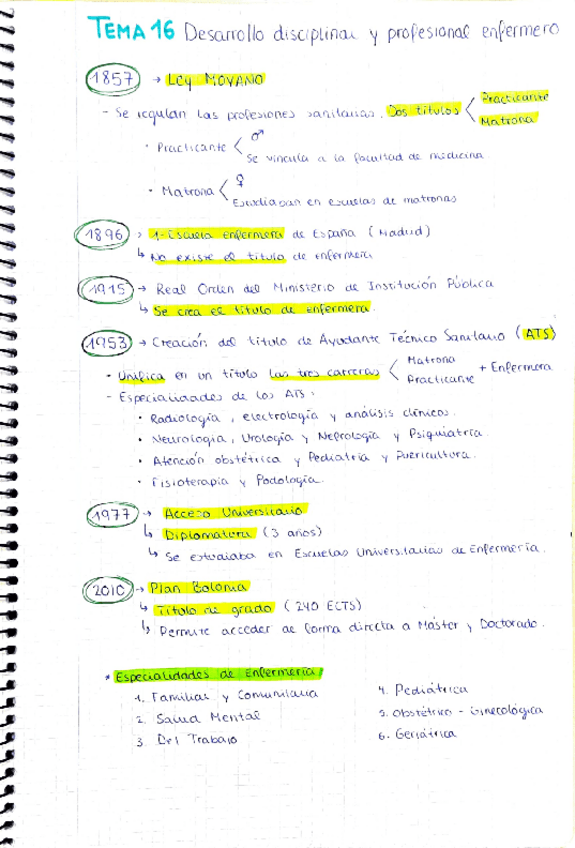 TEMA 16 Desarrollo disciplinar y profesional enfermero
1857 → Ley MOYANO
- Se regulan las profesiones sanitarias. Dos títulos < Practicante
Matrona
· Practicante < ♂
Se vincula a la facultad de medicina
· Matrona < ♀
Estudiaban en escuelas de matronas
1896 → 1ª Escuela enfermera de España (Madrid)
↳ No existe el título de enfermera
1915 → Real Orden del Ministerio de Institución Pública
↳ Se crea el título de enfermera.
1953 → Creación del título de Ayudante Técnico Sanitario (ATS)
· Unifica en un título las tres carreras < Matrona
Practicante + Enfermera
- Especialidades de los ATS:
· Radiología, electrología y análisis clínicos.
· Neurología, Urología y Nefrología y Psiquiatría.
· Atención obstétrica y Pediatría y Puericultura.
· Fisioterapia y Podología.
1977 → Acceso Universitario
↳ Diplomatura (3 años)
↳ Se estudiaba en Escuelas Universitarias de Enfermería.
2010 → Plan Bolonia
↳ Título de grado (240 ECTS)
↳ Permite acceder de forma directa a Máster y Doctorado.
* Especialidades de Enfermería:
1. Familiar y Comunitaria
2. Salud Mental
3. Del Trabajo
4. Pediátrica
5. Obstétrico - Ginecológica
6. Geriátrica